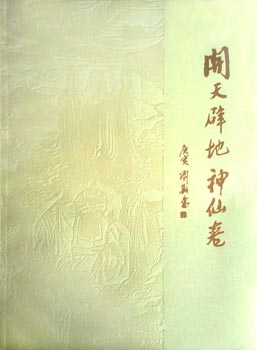 開天辟地神仙卷
庚寅